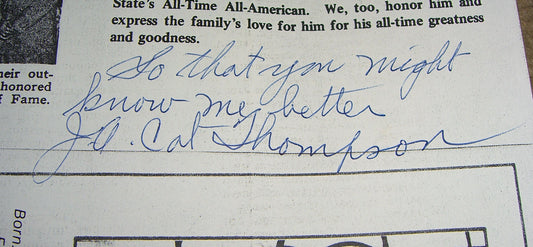 State's All-Time All-American. We, too, honor him and
express the family's love for him for his all-time greatness
and goodness.
heir out-
honored
f Fame.
So that you might
know me, better
J.A. Cat Thompson
Born